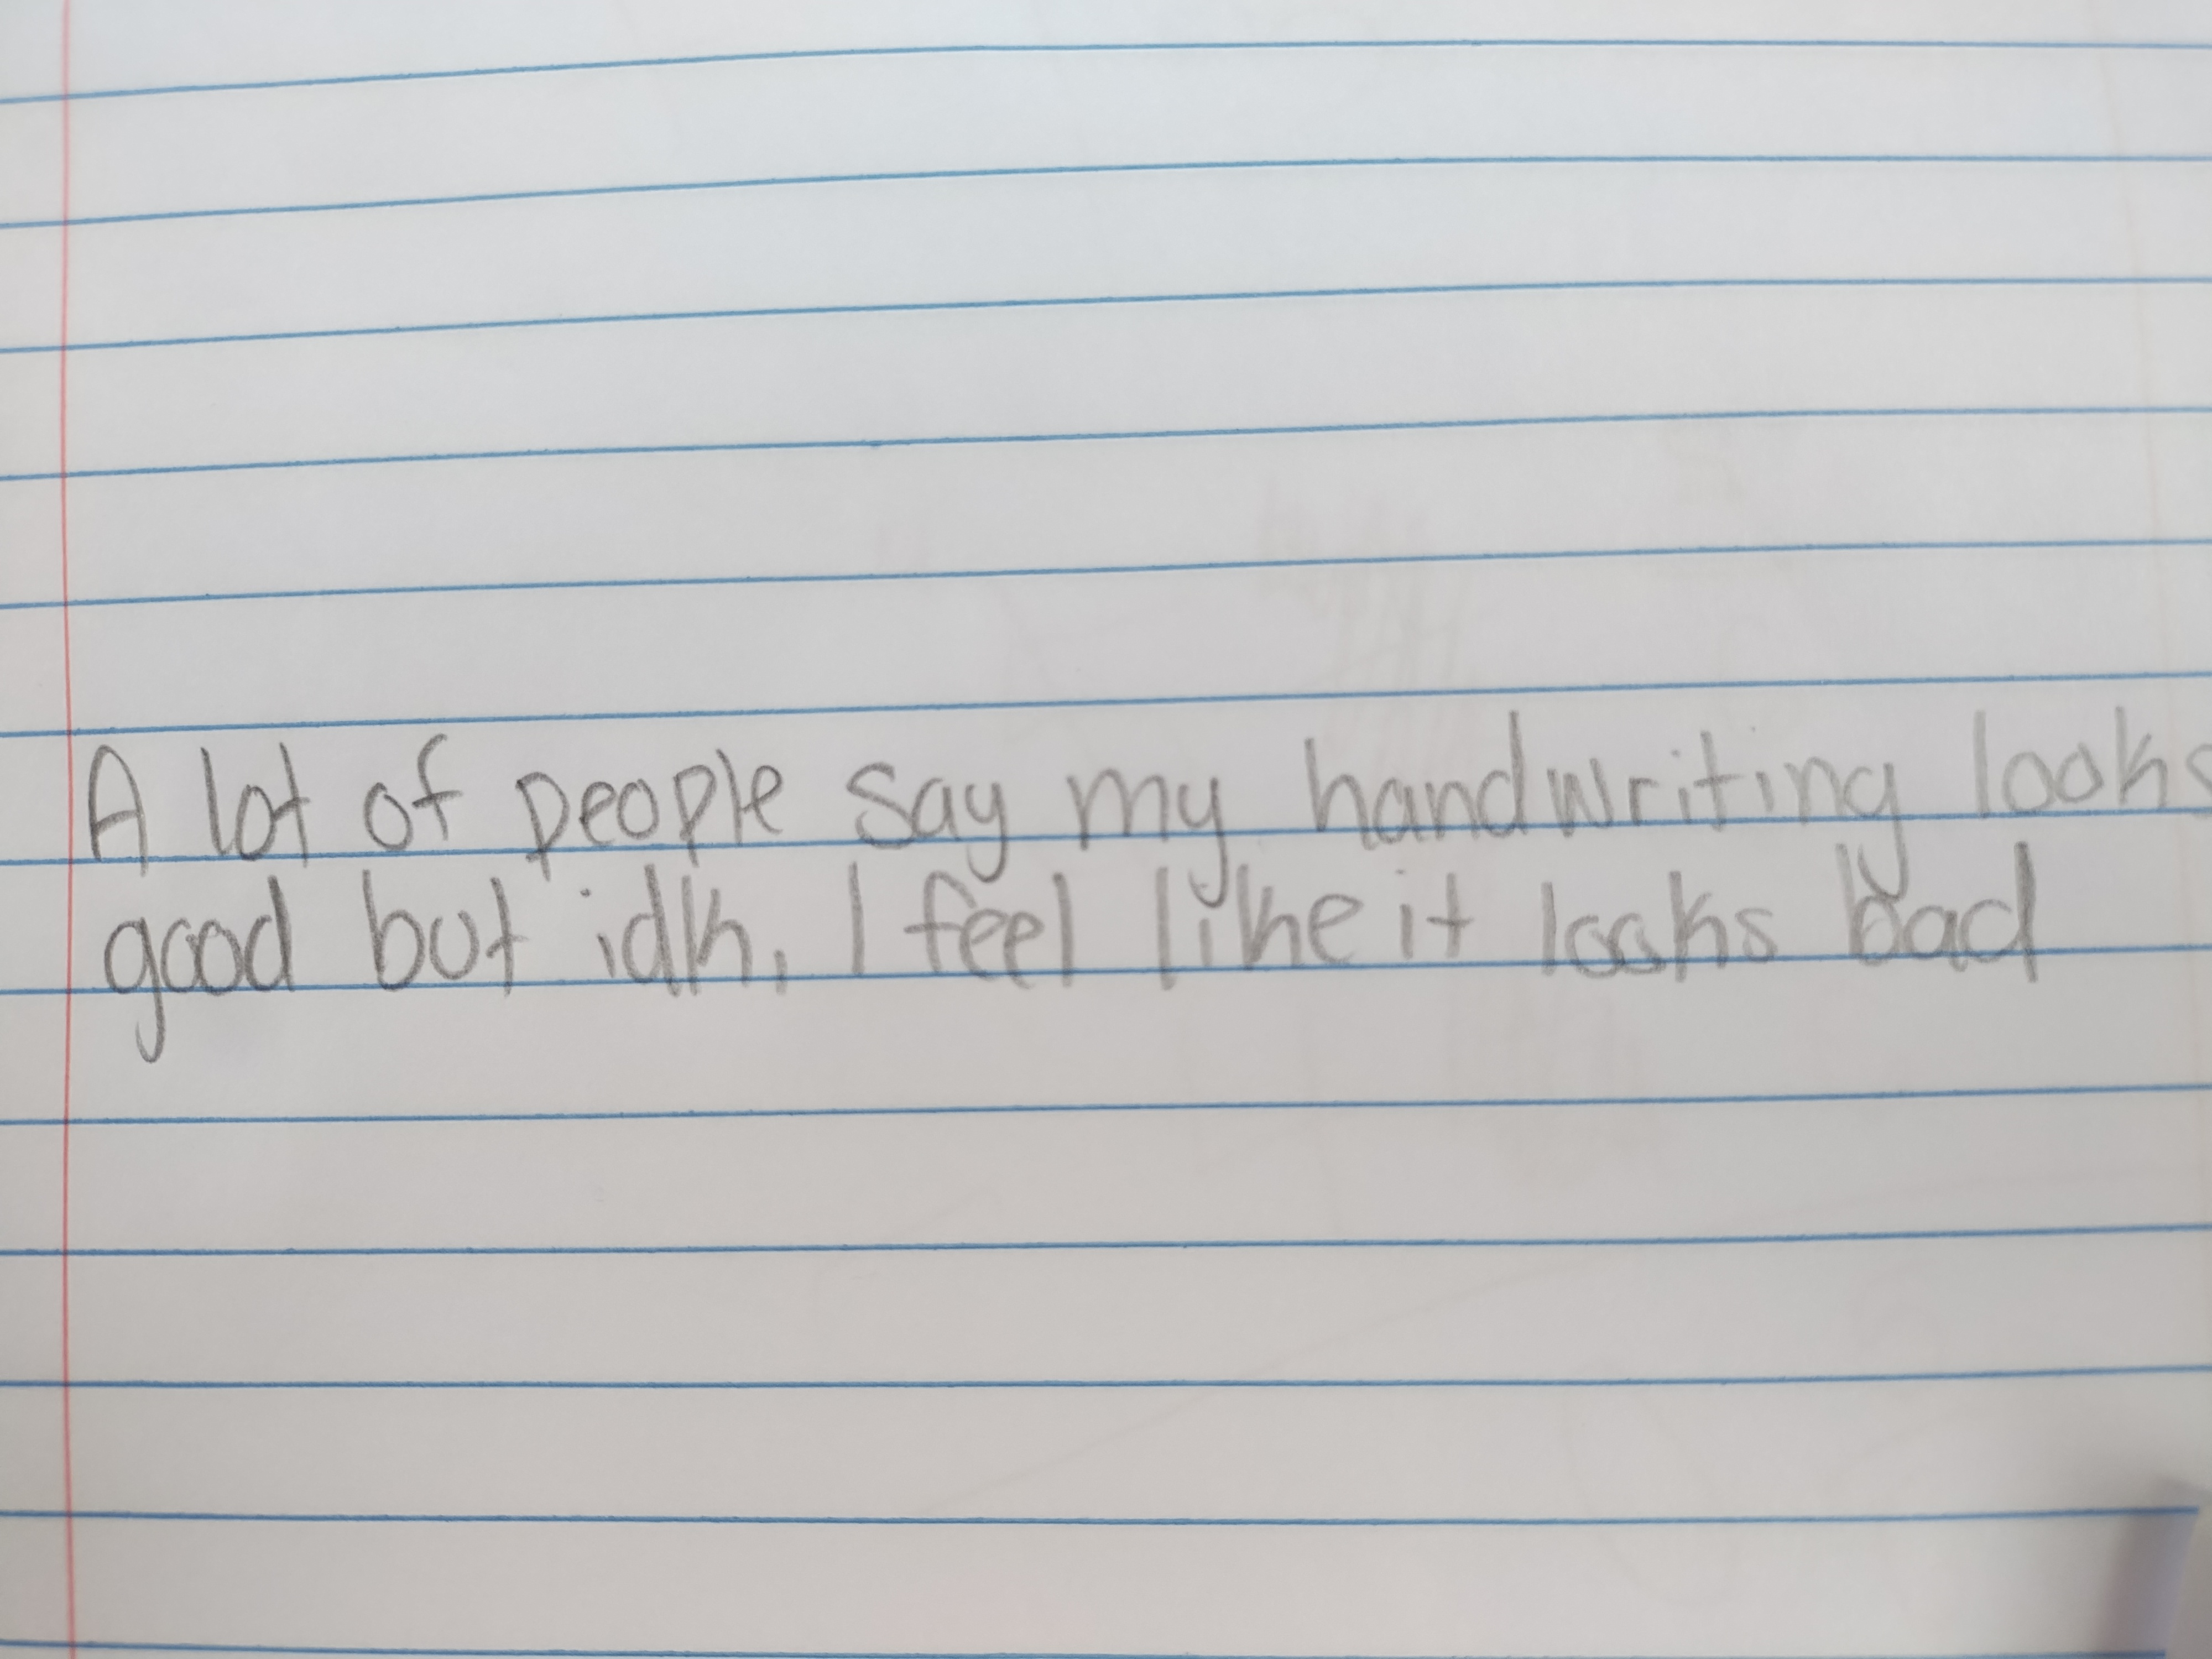 A lot of people say my handwriting looks
good but idk, I feel like it looks bad